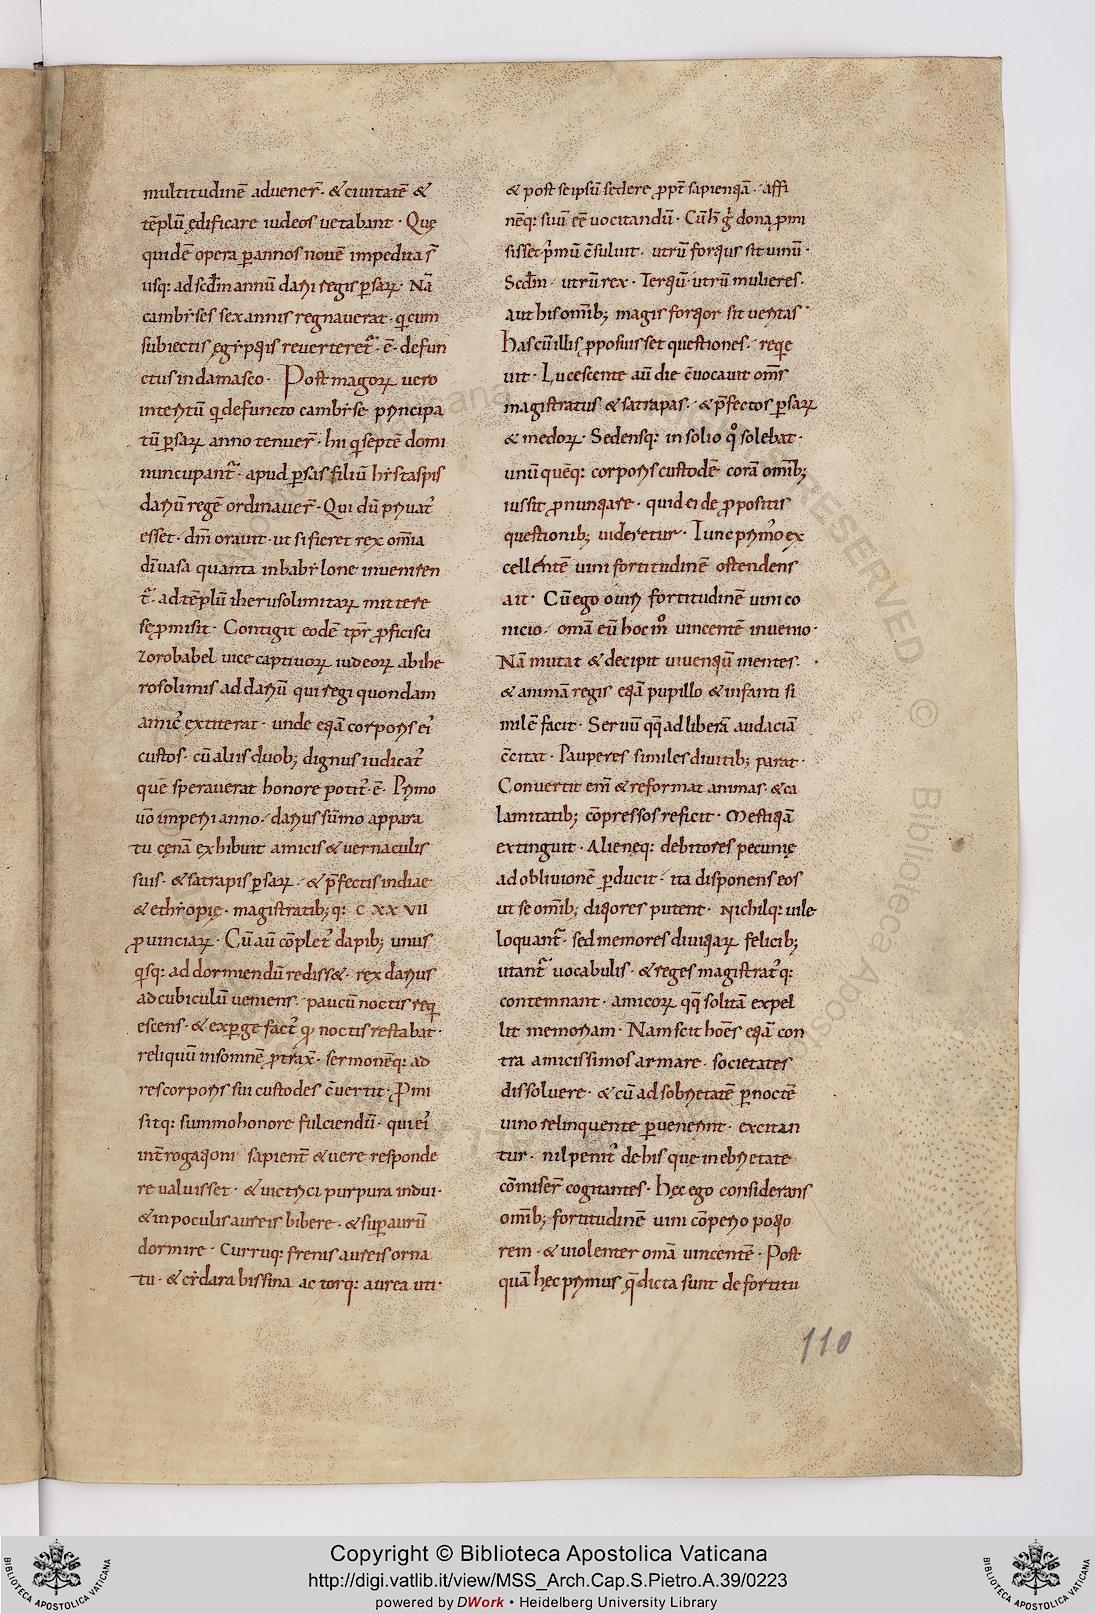 multitudinē aduener̄· & ciuitatē &
tēplū ędificare iudeos uetabant· Quę
quidē opera ꝑ annos nouē impedita s̄
usq: ad scd̄m annū darii regis ꝑsaꝝ· Nā
cambẏses sex annis regnauerat· q̇ cum
subiectis ęgẏptiis reuerteret᷑· ē· defun
ctus in damasco· Post magoꝝ uero
interitū qi defuncto cambẏse principa
tū ꝑsaꝝ anno tenuer̄· hii qi septē domi
nuncupant᷑· apud ꝑsas filiū hẏstaspis
dariū regē ordinauer̄· Qui dū priuat᷒
esset· dm̄ orauit· ut si fieret rex om̄ia
dī uasa quanta in babẏlone inueniren
t᷑· ad tēplū iherusolimitaꝝ mittere
se ꝓmisit· Contigit eodē tpr̄ ꝓficisci
zorobabel uice captiuoꝝ iudeoꝝ ab ihe
rosolimis ad dariū qui regi quondam
amic᷒ extiterat· unde etiā corporis ei᷒
custos· cū aliis duob; dignus iudicat᷒
quē sperauerat honore potit᷒· ē· Primo
uō imperii anno· darius sūmo appara
tu cęnā exhibuit amicis & uernaculis
suis· & satrapis ꝑsaꝝ· & p̄fectis indiae
& ethẏopię· magistratib; q: C XX VII
ꝓuinciaꝝ· Cū aū cōplet᷒ dapib; unus
qisq: ad dormiendū rediss&· rex darius
ad cubiculū ueniens· paucū noctis req
escens· & exꝑgefact᷒ qđ noctis restabat·
reliquū insomnē ꝓtrax̄· sermonēq: ad
res corporis sui custodes c̄uertit· Pmi
sitq: summo honore fulciendū· qui ei᷒
int̄rogationi sapient̄ & uere responde
re ualuisset· & uictrici purpura indui·
& in poculis aureis bibere· & suꝑ aurū
dormire· Curruq: frenis aureis orna
tu· & cẏdara bissina ac torq: aurea uti·
& post se ipsū sedere ꝓpt̄ sapientiā· affi
nēq: suū eē uocitandū· Cū h̄ ḡ dona ꝓmi
sisset ṗmū c̄suluit· utrū fortius sit uinū·
Scd̄m· utrū rex· Tertiū· utrū mulieres·
aut his om̄ib; magis fortior sit ueritas·
Has cū illis ꝓposuisset questiones· reqe
uit· Lucescente aū die c̄uocauit oms̄
magistratus & satrapas· & p̄fectos ꝑsaꝝ
& medoꝝ· Sedensq: in solio qͦ solebat·
unū quēq: corporis custodē corā om̄ib;
iussit ꝓnuntiare· quid ei de ꝓpositis
questionib; uideretur· Tunc prim᷒ ex
cellentē uini fortitudinē ostendens
ait· Cū ego o uiri fortitudinē uini co
nicio· omā eū hoc mͦ uincentē inuenio·
Nā mutat & decipit uiuentiū mentes·
& animā regis etiā pupillo & infanti si
milē facit· Seruū qq ad liberā audaciā
c̄citat· Pauperes similes diuitib; parat·
Conuertit em̄ & reformat animas· & ca
lamitatib; cōpressos reficit· Mestitiā
extinguit· Alienęq: debitores pecunię
ad obliuionē ꝑducit· ita disponens eos
ut se om̄ib; ditiores putent· Nichilq: uile
loquant᷑· sed memores diuitiaꝝ felicib;
utant᷑ uocabulis· & reges magistrat᷒q:
contemnant· amicoꝝ qq solitā expel
lit memoriam· Nam scit hoēs etiā con
tra amicissimos armare· societates
dissoluere· & cū ad sobrietatē ꝑ noctē
uino relinquente ꝑuenerint· excitan
tur· nil penit᷒ de his que in ebrietate
cōmiser̄ cogitantes· Hęc ego considerans
om̄ib; fortitudinē uini cōperio potio
rem· & uiolenter omā uincentē· Post
quā hęc primus q̄ dicta sunt de fortitu
110
Copyright © Biblioteca Apostolica Vaticana
http://digi.vatlib.it/view/MSS_Arch.Cap.S.Pietro.A.39/0223
powered by DWork • Heidelberg University Library
BIBLIOTECA APOSTOLICA VATICANA
BIBLIOTECA APOSTOLICA VATICANA